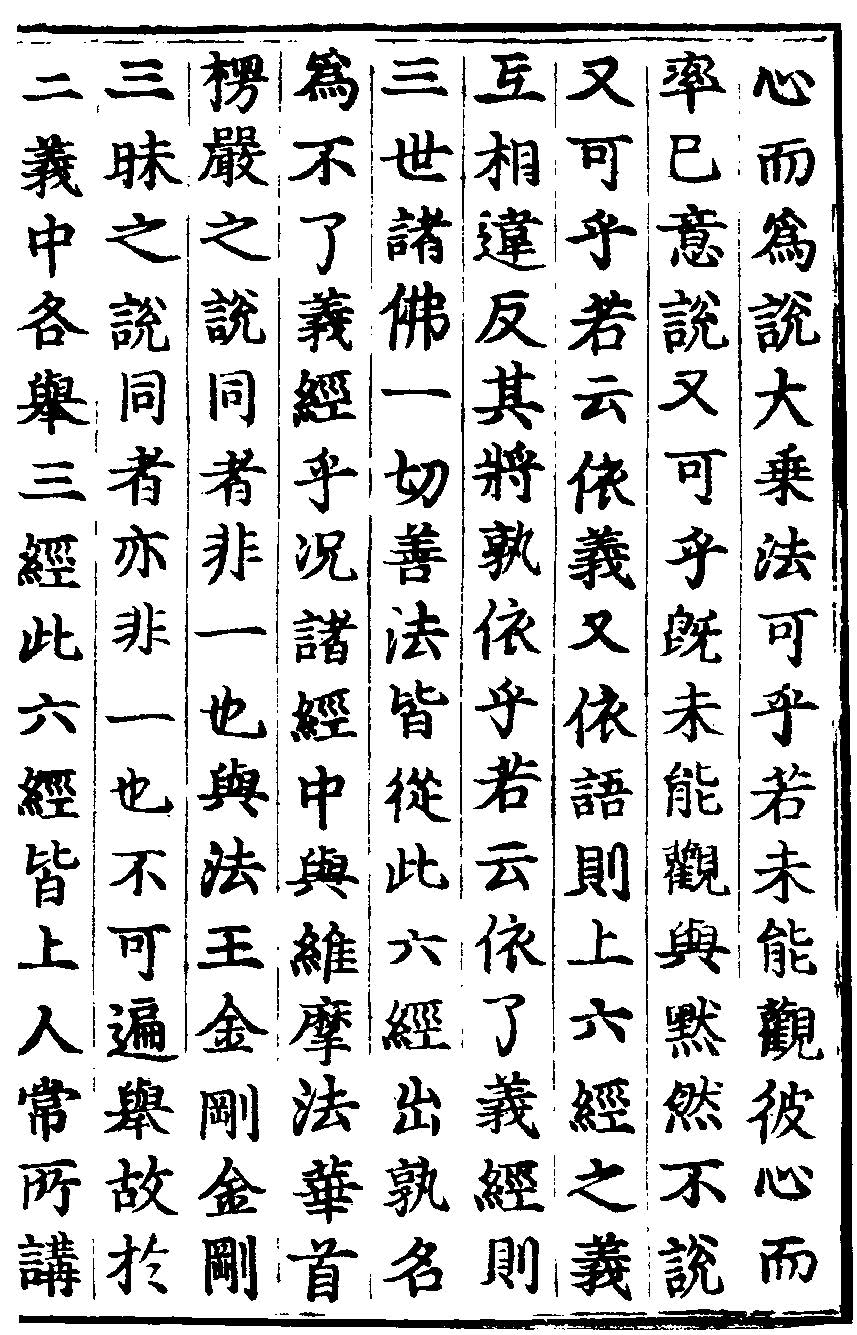 心而爲說大乗法可乎若未能觀彼心而
率已意說又可乎旣未能觀與默然不說
又可乎若云依義又依語則上六經之義
互相違反其將孰依乎若云依了義經則
三世諸佛一切善法皆從此六經出孰名
爲不了義經乎况諸經中與維摩法華首
楞嚴之說同者非一也與法王金剛金剛
三昧之說同者亦非一也不可遍舉故於
二義中各舉三經此六經皆上人常所講